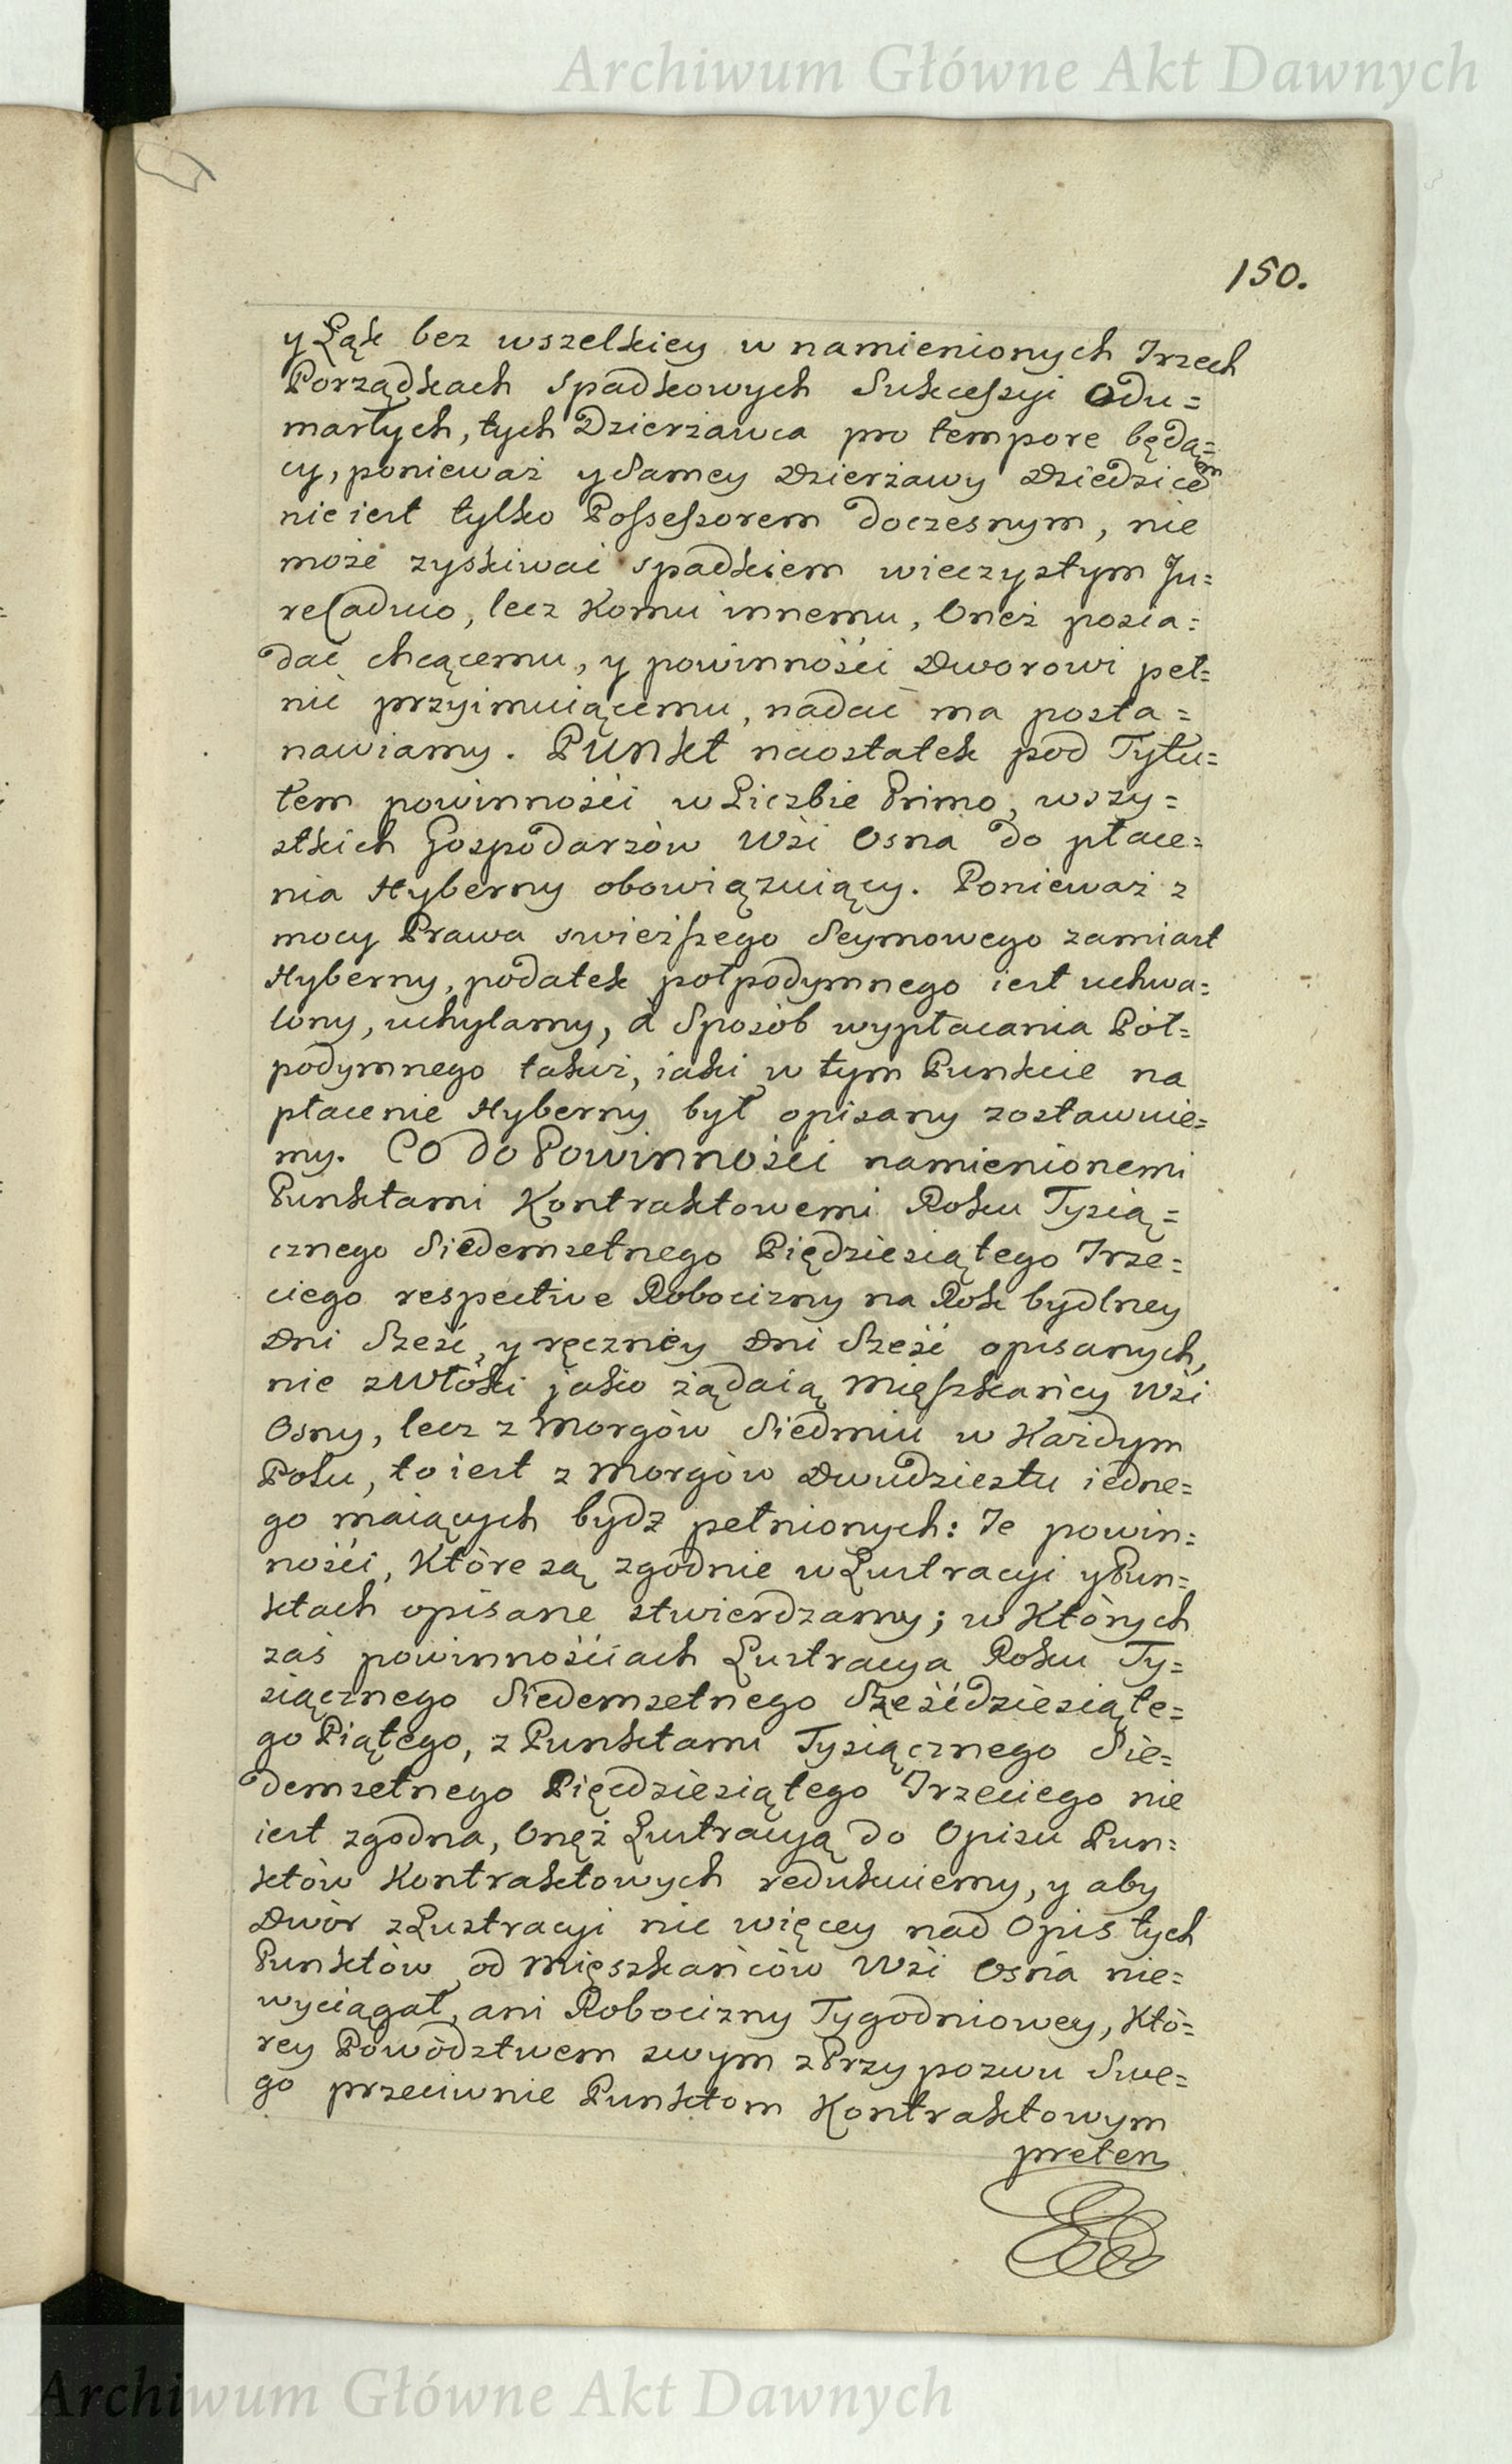 Archiwum Główne Akt Dawnych
150.
y Łąk bez wszelkiey w namienionych Trzech
Porządkach spadkowych Sukcessyi Odu=
marłych, tych Dzierżawca pro tempore będą=
cy, ponieważ y Samey Dzierżawy Dziedzicem
nie iest tylko Possessorem doczesnym, nie
może zyskiwać spadkiem wieczystym Ju=
re Caduco, lecz Komu innemu, Oneż posia=
dać chcącemu, y powinności Dworowi peł=
nić przyimuiącemu, nadać ma posta=
nawiamy. Punkt naostatek pod Tytu=
łem powinności w Liczbie Primo, wszy=
stkich Gospodarzów Wsi Osna do płace=
nia Hyberny obowiązuiący. Ponieważ z
mocy Prawa swieższego Seymowego zamiast
Hyberny, podatek połpodymnego iest uchwa=
lony, uchylamy, a Sposób wypłacania Pół=
podymnego takoż, iaki w tym Punkcie na
płacenie Hyberny był opisany zostawuie=
my. Co do Powinności namienionemi
Punktami Kontraktowemi Roku Tysią=
cznego Siedemsetnego Piędziesiątego Trze=
ciego respective Robocizny na Rok bydlney
Dni Sześć, y ręczney Dni Sześć opisanych,
nie z Włoki jako żądaią Mięszkańcy Wsi
Osny, lecz z Morgów Siedmiu w Każdym
Polu, to iest z Morgów Dwudziestu iedne=
go maiących bydz pełnionych: Te powin=
ności, Które są zgodnie w Lustracyi y Pun=
ktach opisane stwierdzamy; w Których
zaś powinnościach Lustracya Roku Ty=
siącznego Siedemsetnego Sześćdziesiąte=
go Piątego, z Punktami Tysiącznego Sie=
demsetnego Pięćdziesiątego Trzeciego nie
iest zgodna, Onęż Lustracyą do Opisu Pun=
któw Kontraktowych redukuiemy, y aby
Dwór z Lustracyi nic więcey nad Opis tych
Punktów od Mięszkańców Wsi Osna nie=
wyciągał, ani Robocizny Tygodniowey, Któ=
rey Powództwem swym z Przypozwu Swe=
go przeciwnie Punktom Kontraktowym
preten
Archiwum Główne Akt Dawnych